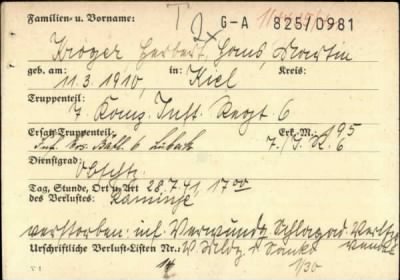 G-A 825/0981
Familien- u. Vorname:
Kröger, Herbert, Hans, Martin
geb. am: in: Kreis:
11.3.1910, Kiel
Truppenteil:
7. Komp. Inft. Regt 6
Ersatz-Truppenteil: Erk.-M.: 195
Inf. Ers. Batl. 6 Lübeck 7./I.R. 6
Dienstgrad:
Obschtz.
Tag, Stunde, Ort u. Art 28.7.41, 17 00
des Verlustes:
verstorben: inf. Verwundg
Urschriftliche Verlust-Listen Nr.:
14 1/30